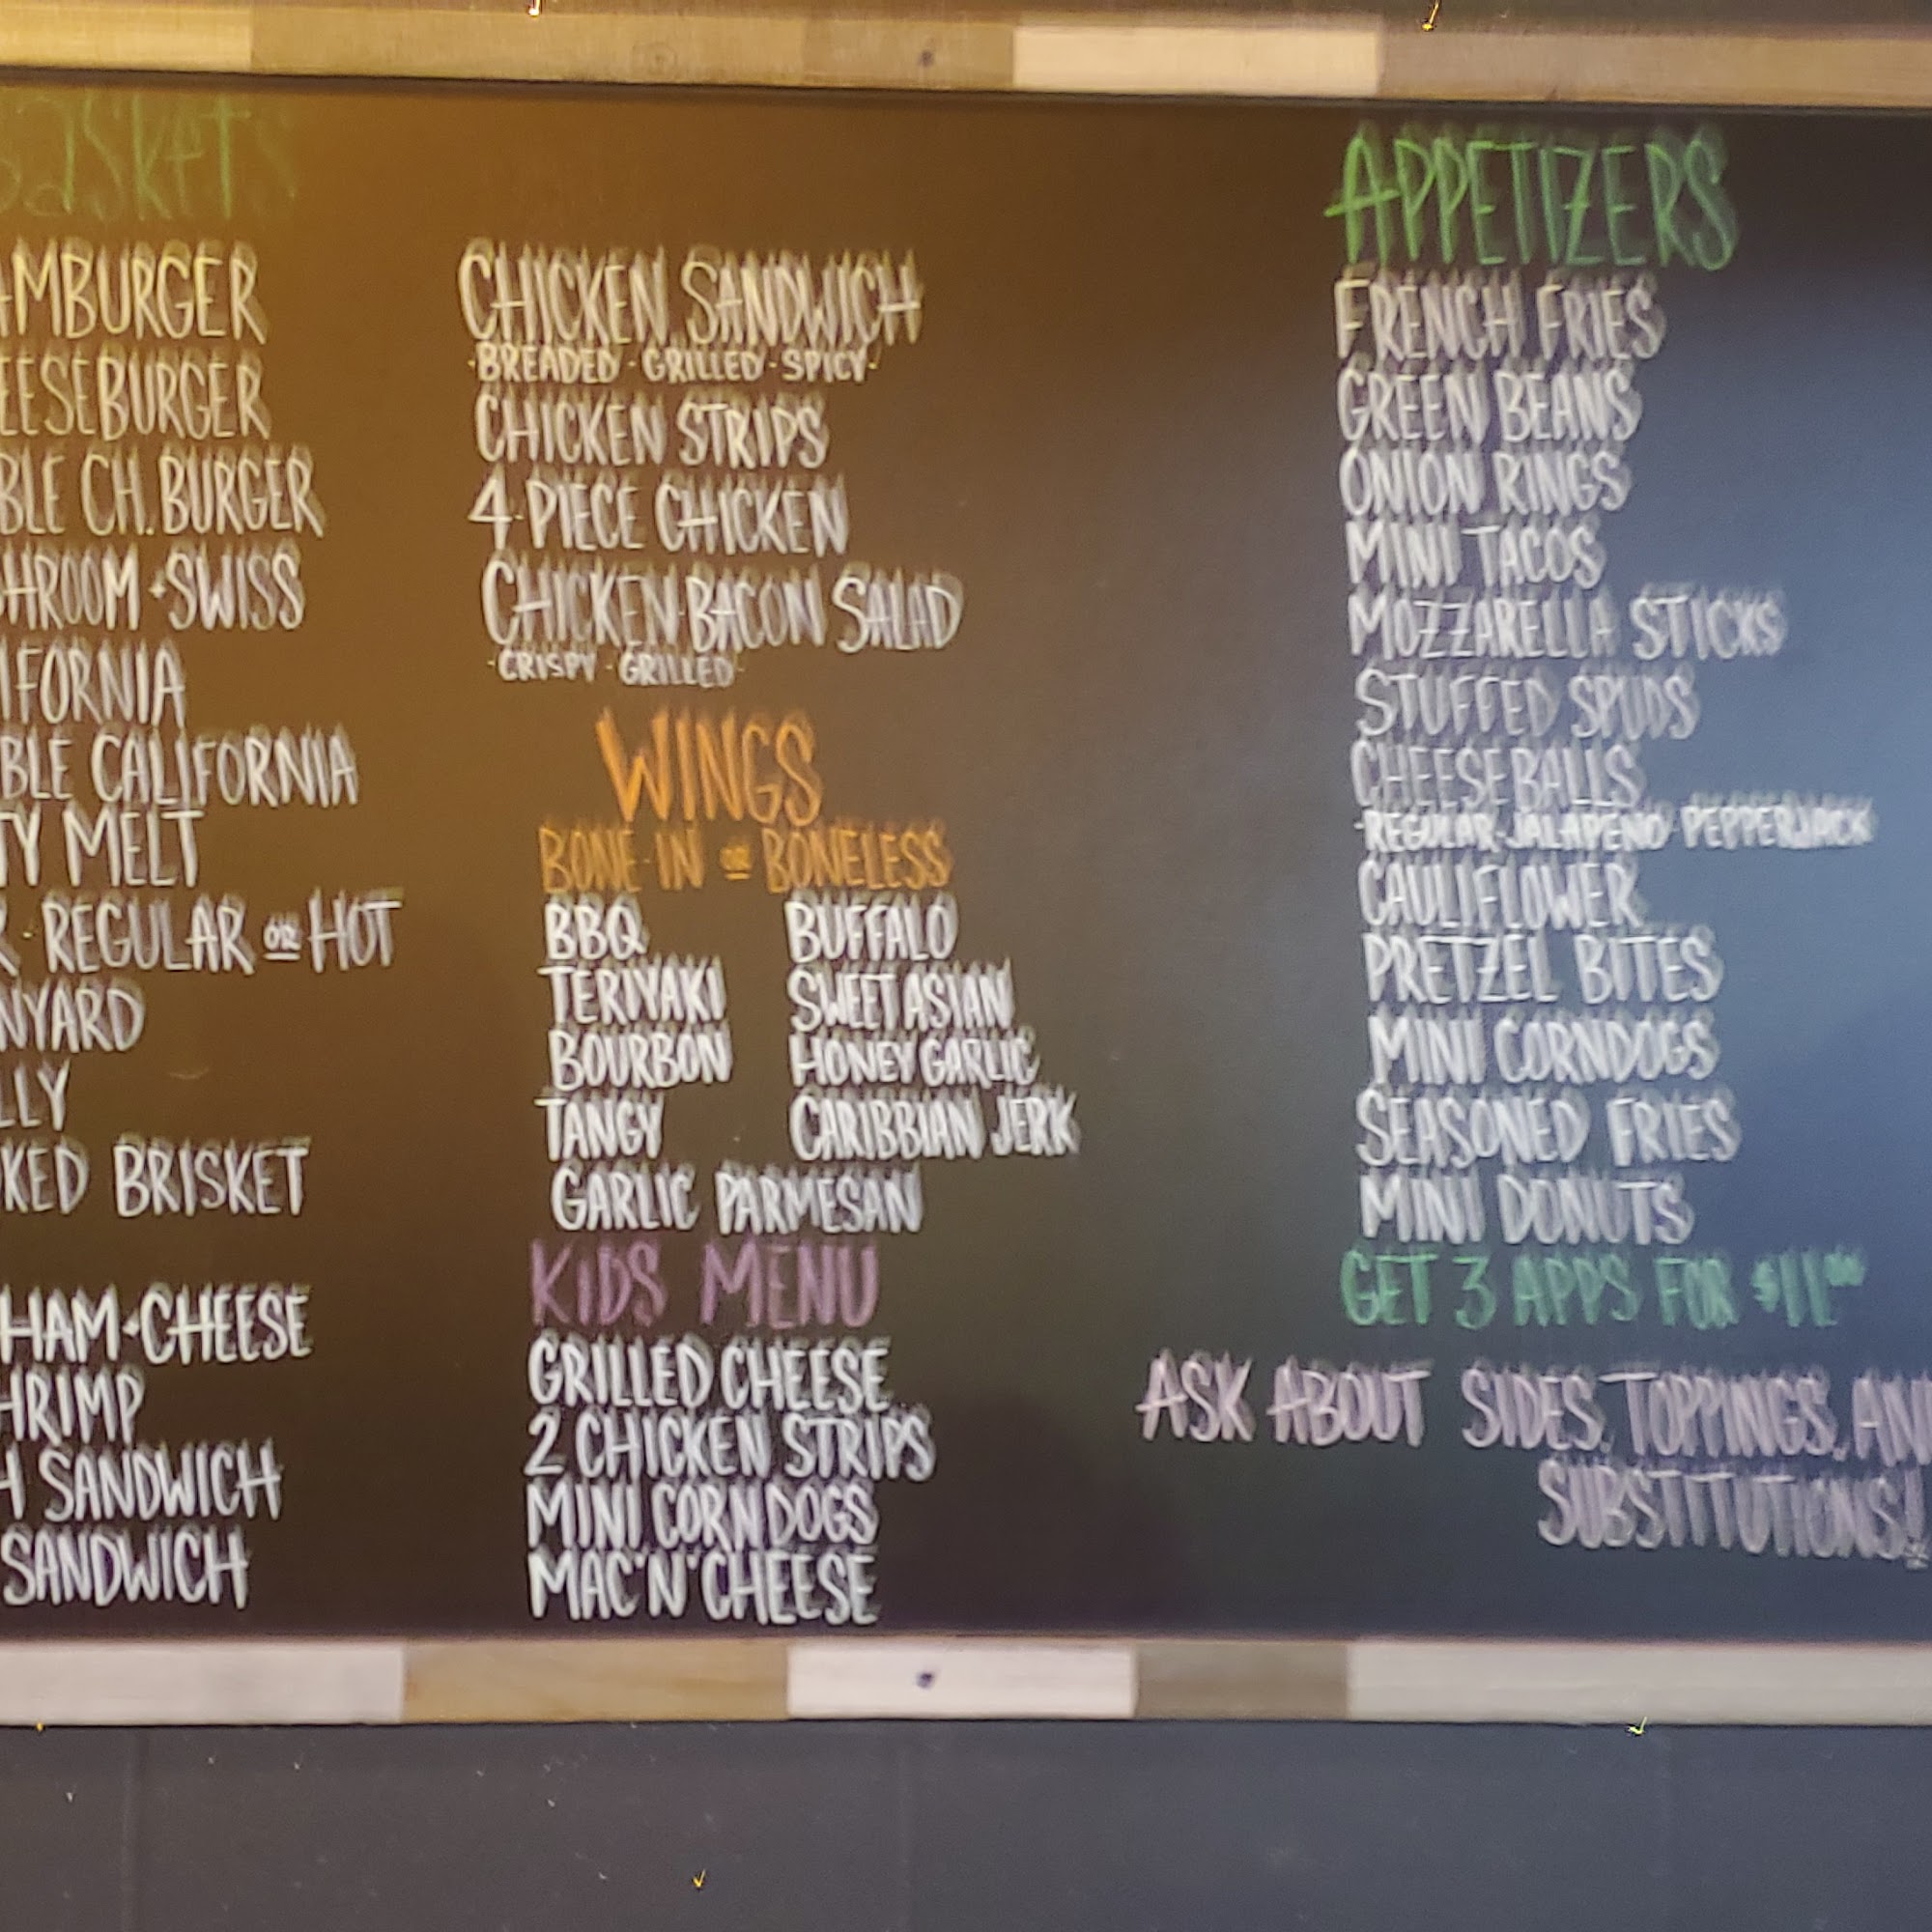 Baskets
AMBURGER
EESEBURGER
BLE CH. BURGER
HROOM + SWISS
IFORNIA
BLE CALIFORNIA
TY MELT
R - REGULAR OR HOT
NYARD
LLY
KED BRISKET
HAM + CHEESE
HRIMP
H SANDWICH
SANDWICH
CHICKEN SANDWICH
-BREADED - GRILLED - SPICY-
CHICKEN STRIPS
4-PIECE CHICKEN
CHICKEN-BACON SALAD
-CRISPY - GRILLED-
WINGS
BONE-IN OR BONELESS
BBQ BUFFALO
TERIYAKI SWEET ASIAN
BOURBON HONEY GARLIC
TANGY CARIBBIAN JERK
GARLIC PARMESAN
KIDS MENU
GRILLED CHEESE
2 CHICKEN STRIPS
MINI CORNDOGS
MAC "N" CHEESE
APPETIZERS
FRENCH FRIES
GREEN BEANS
ONION RINGS
MINI TACOS
MOZZARELLA STICKS
STUFFED SPUDS
CHEESE BALLS
-REGULAR-JALAPENO-PEPPERJACK
CAULIFLOWER
PRETZEL BITES
MINI CORNDOGS
SEASONED FRIES
MINI DONUTS
GET 3 APPS FOR $11.00
ASK ABOUT SIDES, TOPPINGS, AN
SUBSTITUTIONS!